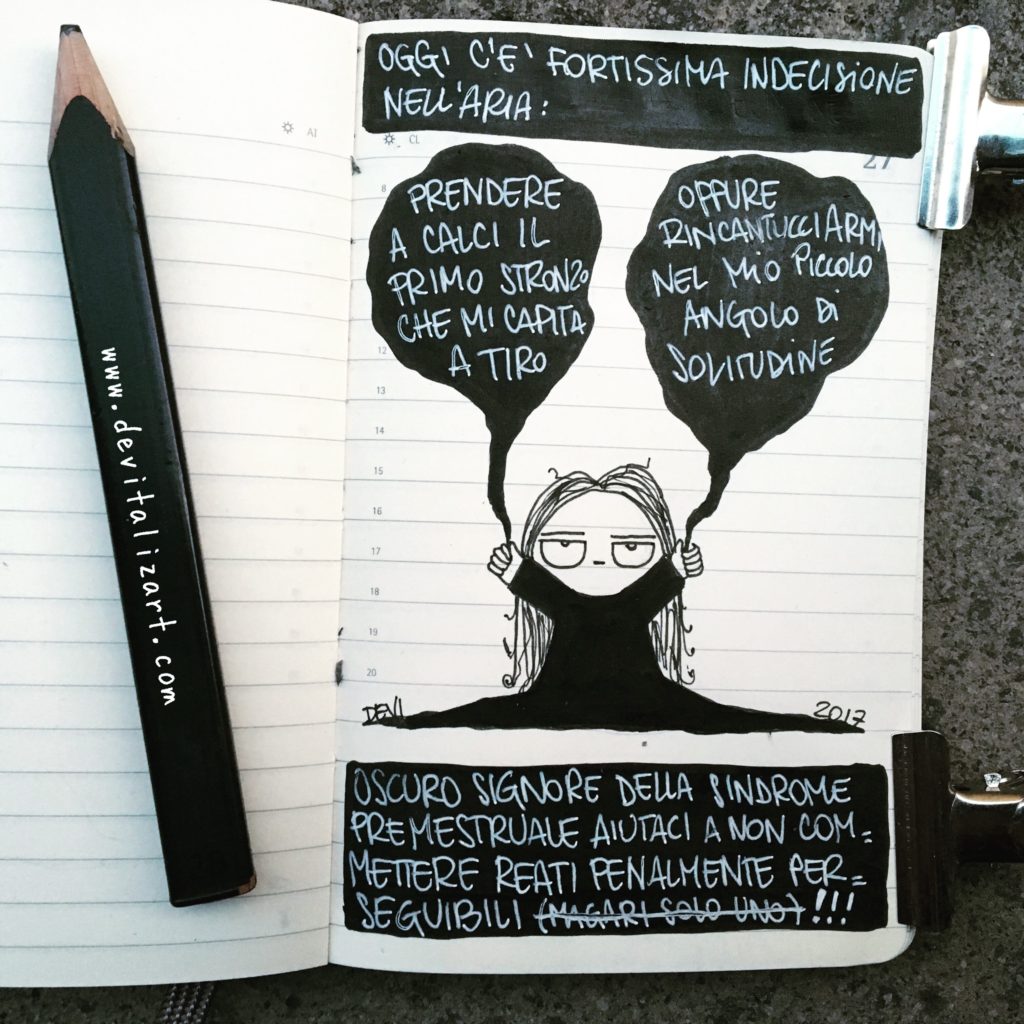 www.devitalizart.com
AI
OGGI C'E' FORTISSIMA INDECISIONE
NELL'ARIA:
CL
27
8
12
13
14
15
16
17
18
19
20
PRENDERE
A CALCI IL
PRIMO STRONZO
CHE MI CAPITA
A TIRO
OPPURE
RINCANTUCCIARMI
NEL MIO PICCOLO
ANGOLO DI
SOLITUDINE
DEVI
2017
OSCURO SIGNORE DELLA SINDROME
PREMESTRUALE AIUTACI A NON COM=
METTERE REATI PENALMENTE PER=
SEGUIBILI (MAGARI SOLO UNO) !!!